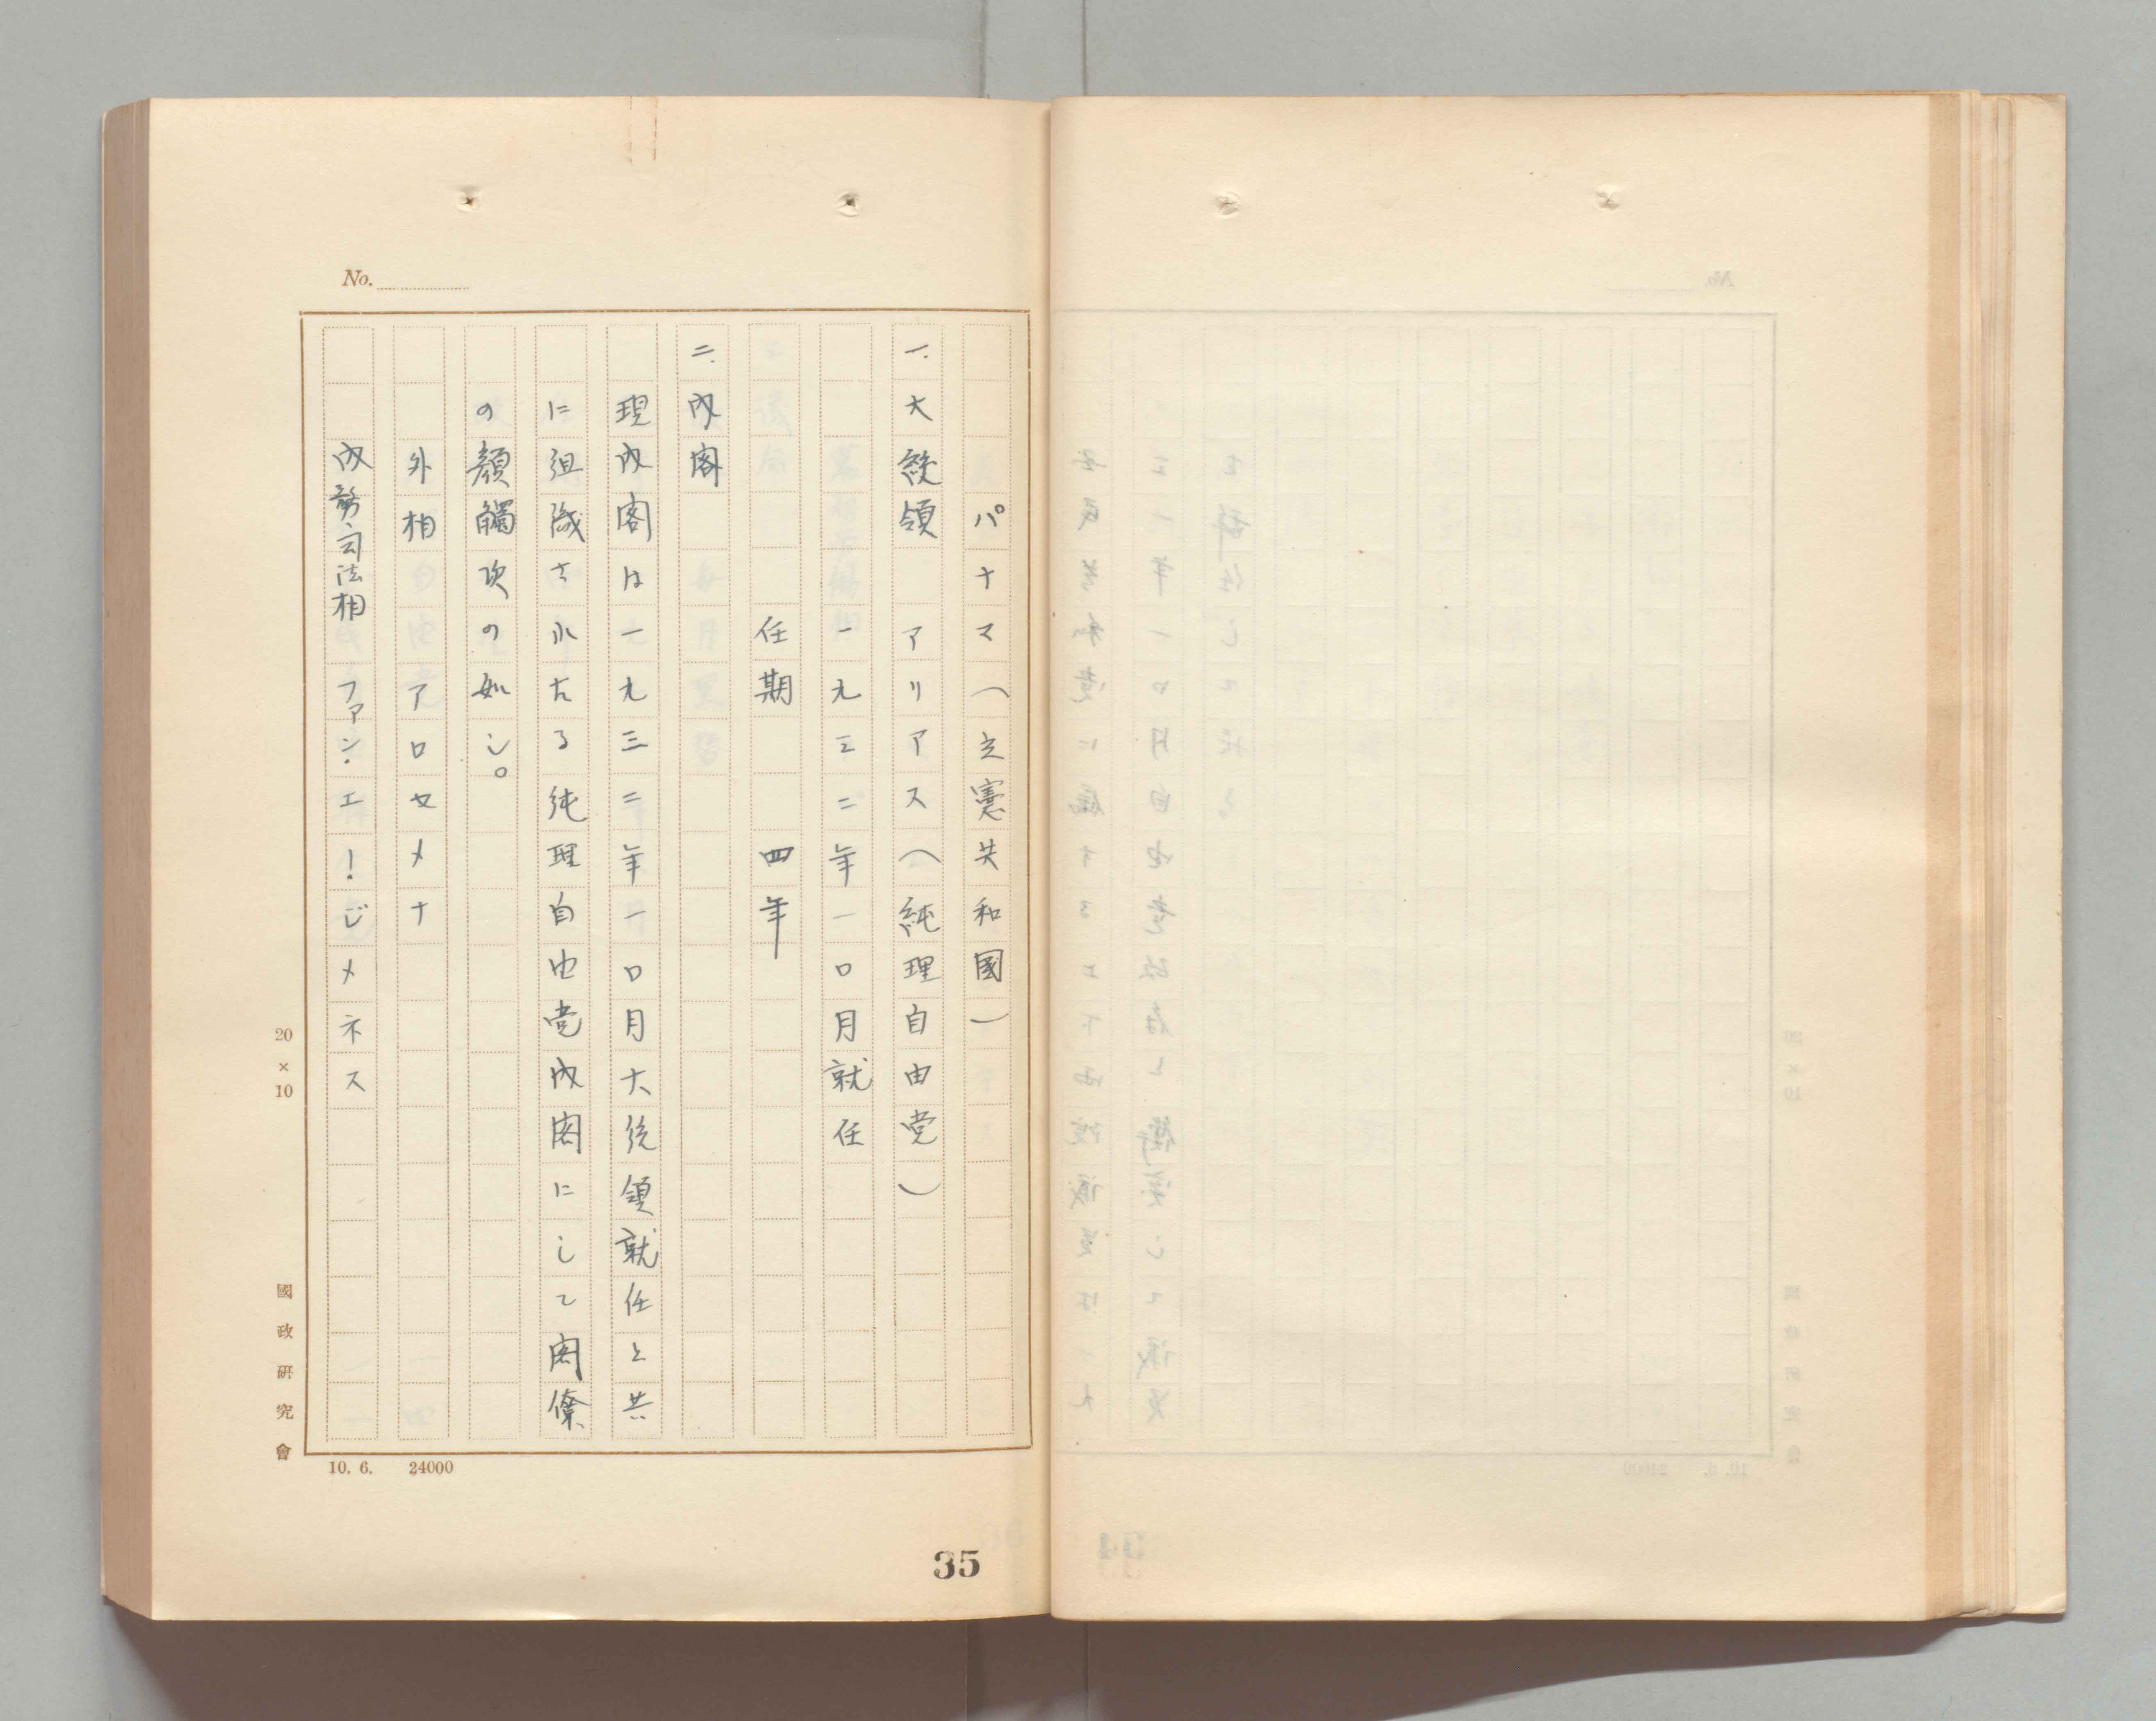 No.
パナマ(立憲共和國)
一.大統領 アリアス(純理自由党)
一九三二年一〇月就任
任期 四年
二.内閣
現内閣は一九三二年一〇月大統領就任と共
に組織されたる純理自由党内閣にして閣僚
の顔觸次の如し。
外相 アロセメナ
内務司法相 ファン・エ!ジメネス
20×10
國政研究會
10. 6. 24000
35